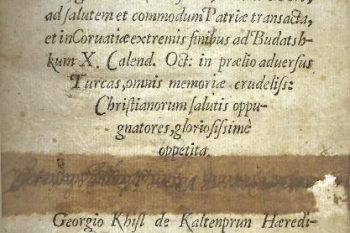 ad salutem et commodum Patriæ transacta,
et in Coruatiæ extremis finibus ad Budatsh-
kum X. Calend. Oct: in prælio adversus
Turcas, omnis memoriæ crudeliss:
Christianorum salutis oppu-
gnatores, gloriosissimè
oppetita.
Georgio Khisl de Kaltenprun Hæredi-